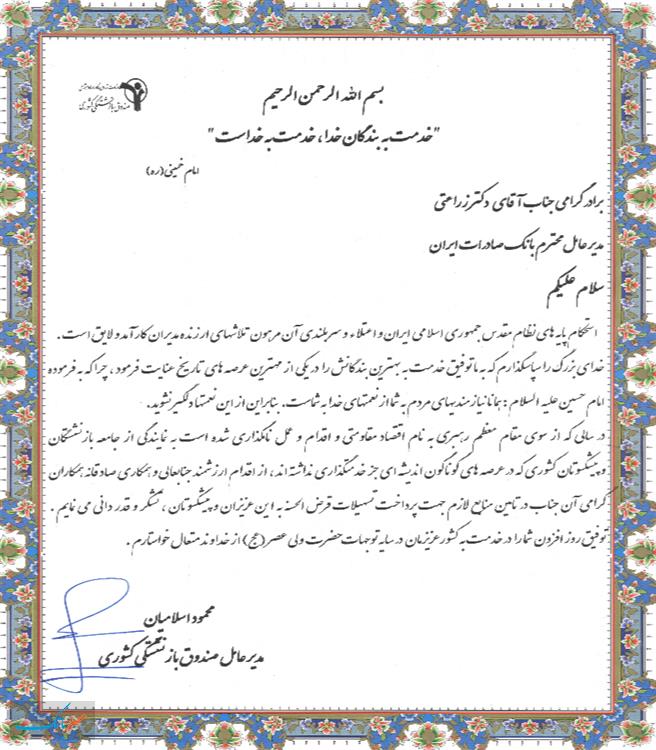 صندوق بازنشستگی کشوری
بسم الله الرحمن الرحیم
"خدمت به بندگان خدا، خدمت به خداست"
امام خمینی (ره)
برادر گرامی جناب آقای دکتر زراعتی
مدیر عامل محترم بانک صادرات ایران
سلام علیکم
استحکام پایه های نظام مقدس جمهوری اسلامی ایران و اعتلاء و سربلندی آن مرهون تلاشهای ارزنده مدیران کارآمد و لایق است.
خدای بزرگ را سپاسگذارم که به ما توفیق خدمت به بهترین بندگانش را در یکی از مهمترین عرصه های تاریخ عنایت فرمود، چرا که به فرموده
امام حسین علیه السلام : همانا نیازمندیهای مردم به شما از نعمتهای خدا به شماست. بنابراین از این نعمتها دلگیر نشوید.
در سالی که از سوی مقام معظم رهبری به نام اقتصاد مقاومتی و اقدام و عمل نامگذاری شده است به نمایندگی از جامعه بازنشستگان
و پیشکسوتان کشوری که در عرصه های گوناگون اندیشه ای جز خدمتگذاری نداشته اند، از اقدام ارزشمند جنابعالی و همکاری صادقانه همکاران
گرامی آن جناب در تامین منابع لازم جهت پرداخت تسهیلات قرض الحسنه به این عزیزان و پیشکسوتان ، تشکر و قدردانی می نمایم .
توفیق روز افزون شما را در خدمت به کشور عزیزمان در سایه توجهات حضرت ولی عصر (عج) از خداوند متعال خواستارم .
محمود اسلامیان
مدیر عامل صندوق بازنشستگی کشوری